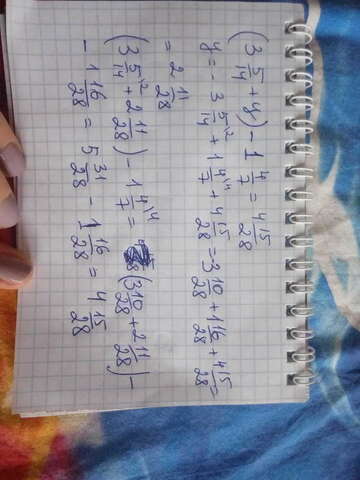 (3 5/14 + y) - 1 4/7 = 4 15/28
y = - 3 5/14 \2 + 1 4/7 \4 + 4 15/28 = -3 10/28 + 1 16/28 + 4 15/28 =
= 2 21/28
(3 5/14 \2 + 2 21/28) - 1 4/7 \4 = (3 10/28 + 2 21/28) -
- 1 16/28 = 5 31/28 - 1 16/28 = 4 15/28